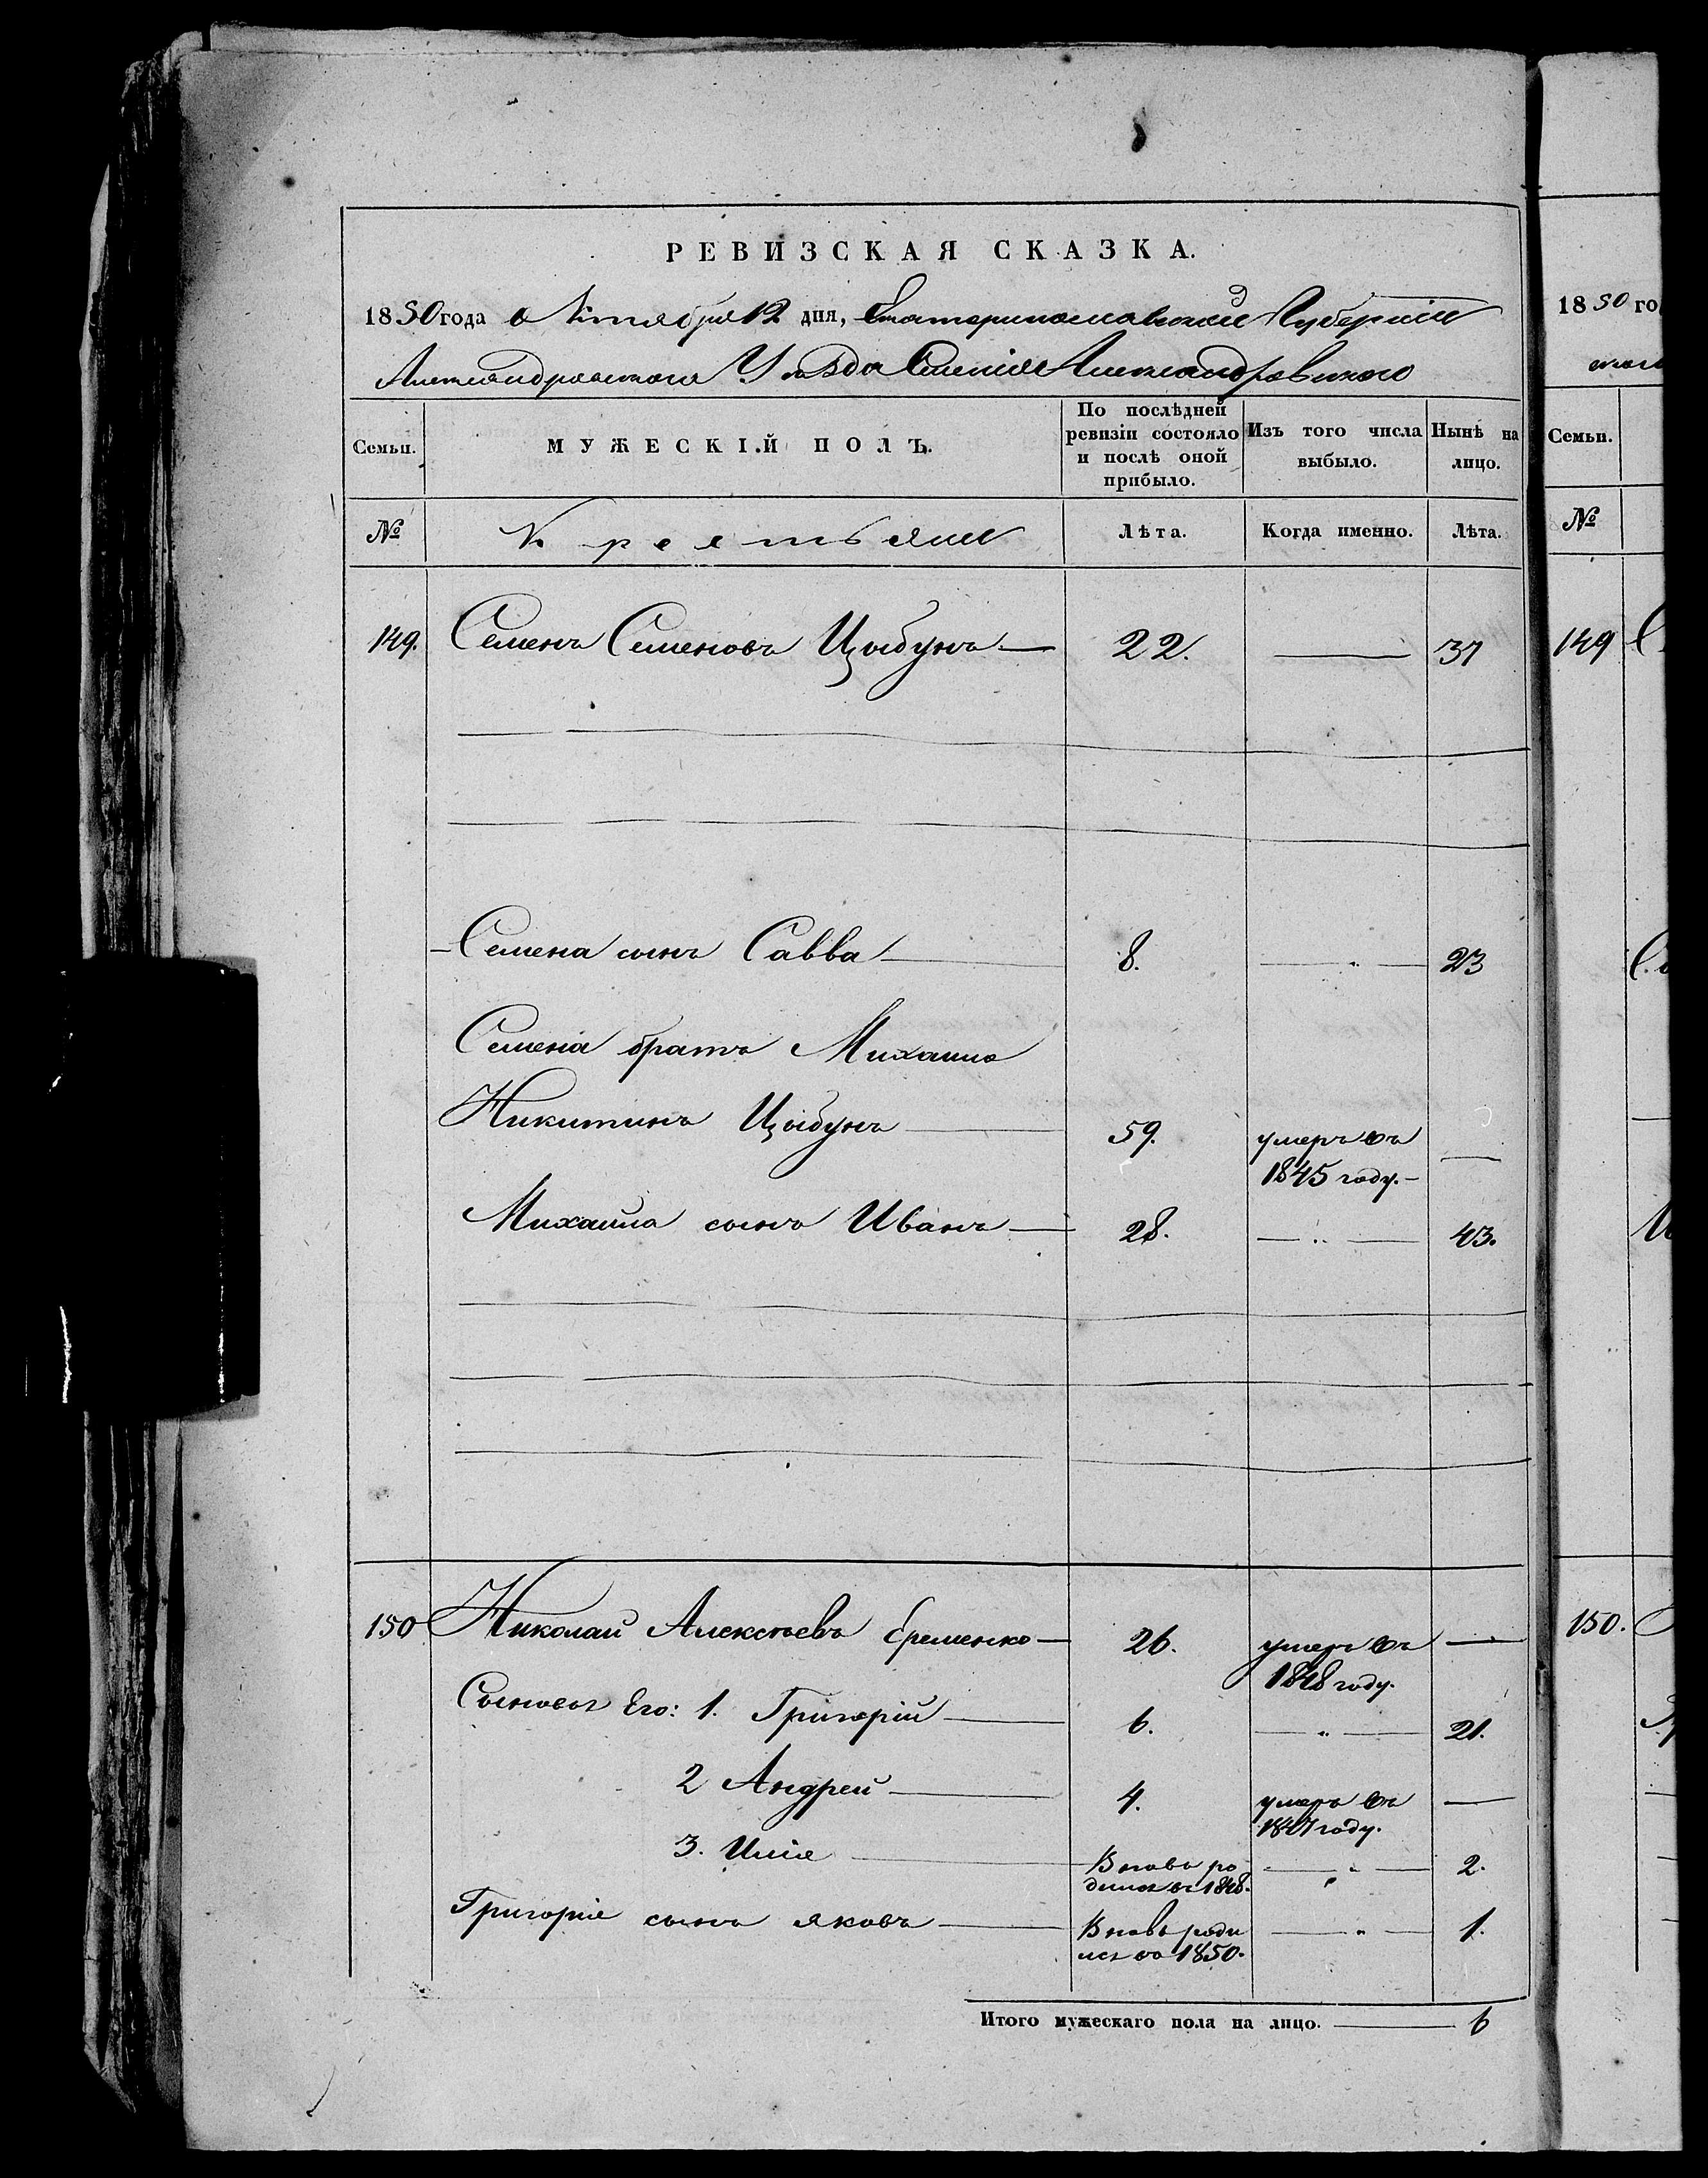 РЕВИЗСКАЯ СКАЗКА.
1850 года октября 12 дня, Екатеринославской Губерніи
Александровскаго Уѣзда Имѣнія Александровского
Семьи.
МУЖЕСКІЙ ПОЛЪ.
По послѣдней ревизіи состояло и послѣ оной прибыло.
Изъ того числа выбыло.
Нынѣ на лицо.
№
Крестьяни
Лѣта.
Когда именно.
Лѣта.
149. Семенъ Семеновъ Цыбунъ — 22. — 37
Семена сынъ Савва — 8. — " — 23
Семена братъ Михаилъ
Никитинъ Цыбунъ — 59. умеръ въ —
1845 году. —
Михаила сынъ Иванъ — 28. — " — 43.
150 Николай Алексѣевъ Еременко — 26. умеръ въ —
1848 году.
Сыновья Его: 1. Григорій — 6. — " — 21.
2 Андрей — 4. умеръ въ —
1847 году.
3. Илія — Вновь ро — " — 2.
дился въ 1848.
Григорія сынъ яковъ — Вновь роди — " — 1.
лся въ 1850.
Итого мужескаго пола на лицо. — 6
1850 го
Семьи.
№
149
150.